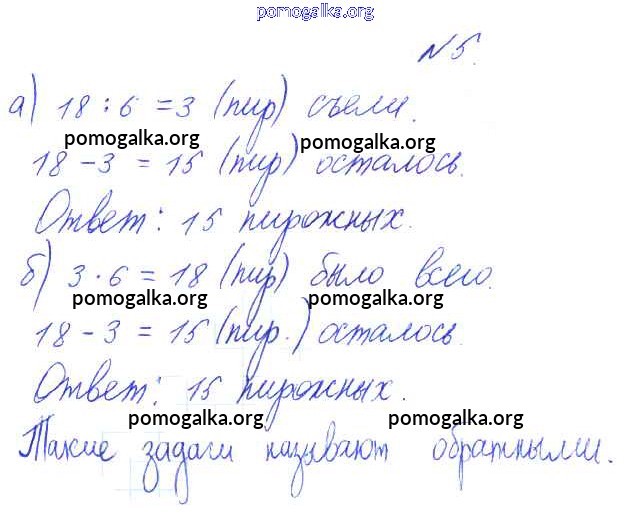 pomogalka.org
N5.
а) 18 : 6 = 3 (пир) съели.
pomogalka.org pomogalka.org
18 - 3 = 15 (пир) осталось.
Ответ: 15 пирожных.
б) 3 · 6 = 18 (пир) было всего.
pomogalka.org pomogalka.org
18 - 3 = 15 (пир.) осталось.
Ответ: 15 пирожных.
pomogalka.org pomogalka.org
Такие задачи называют обратными.